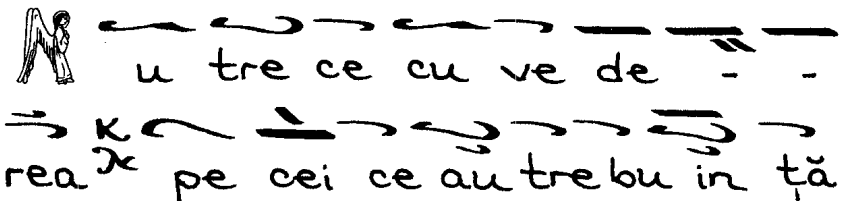 Nu tre ce cu ve de - -
rea pe cei ce au tre bu in ță